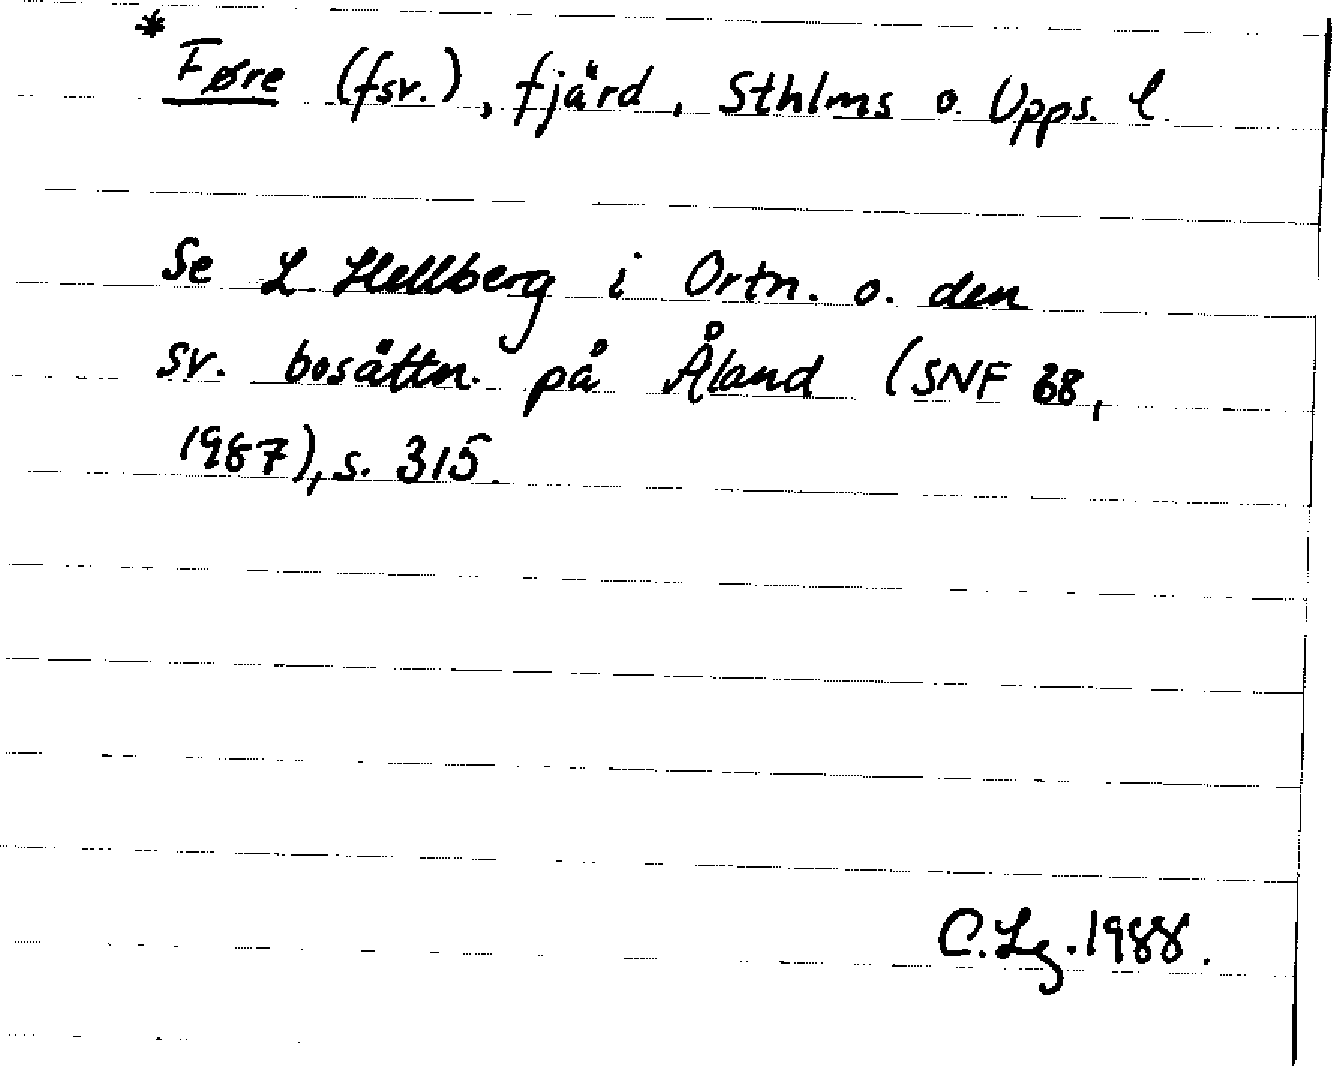 * Føre (fsv.), fjärd, Sthlms o. Upps. l.
Se L Hellberg i Ortn. o. den
sv. bosättn. på Åland (SNF 68,
1987), s. 315.
C. Lg. 1988.